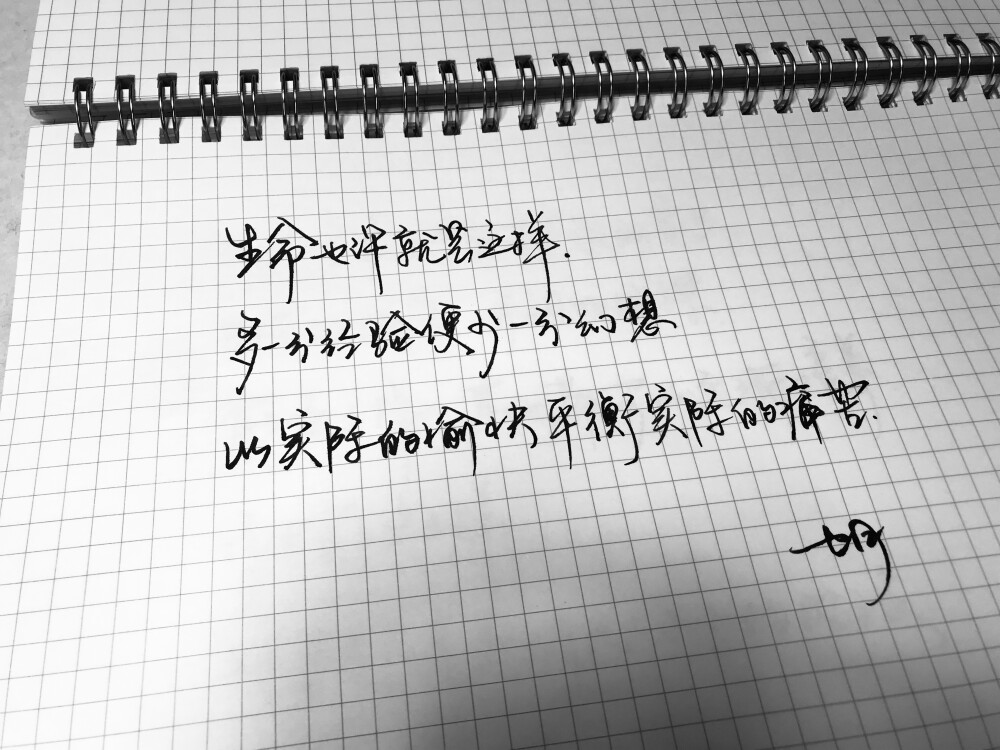 生命也许就是这样.
多一分经验便少一分幻想
以实际的愉快平衡实际的痛苦.